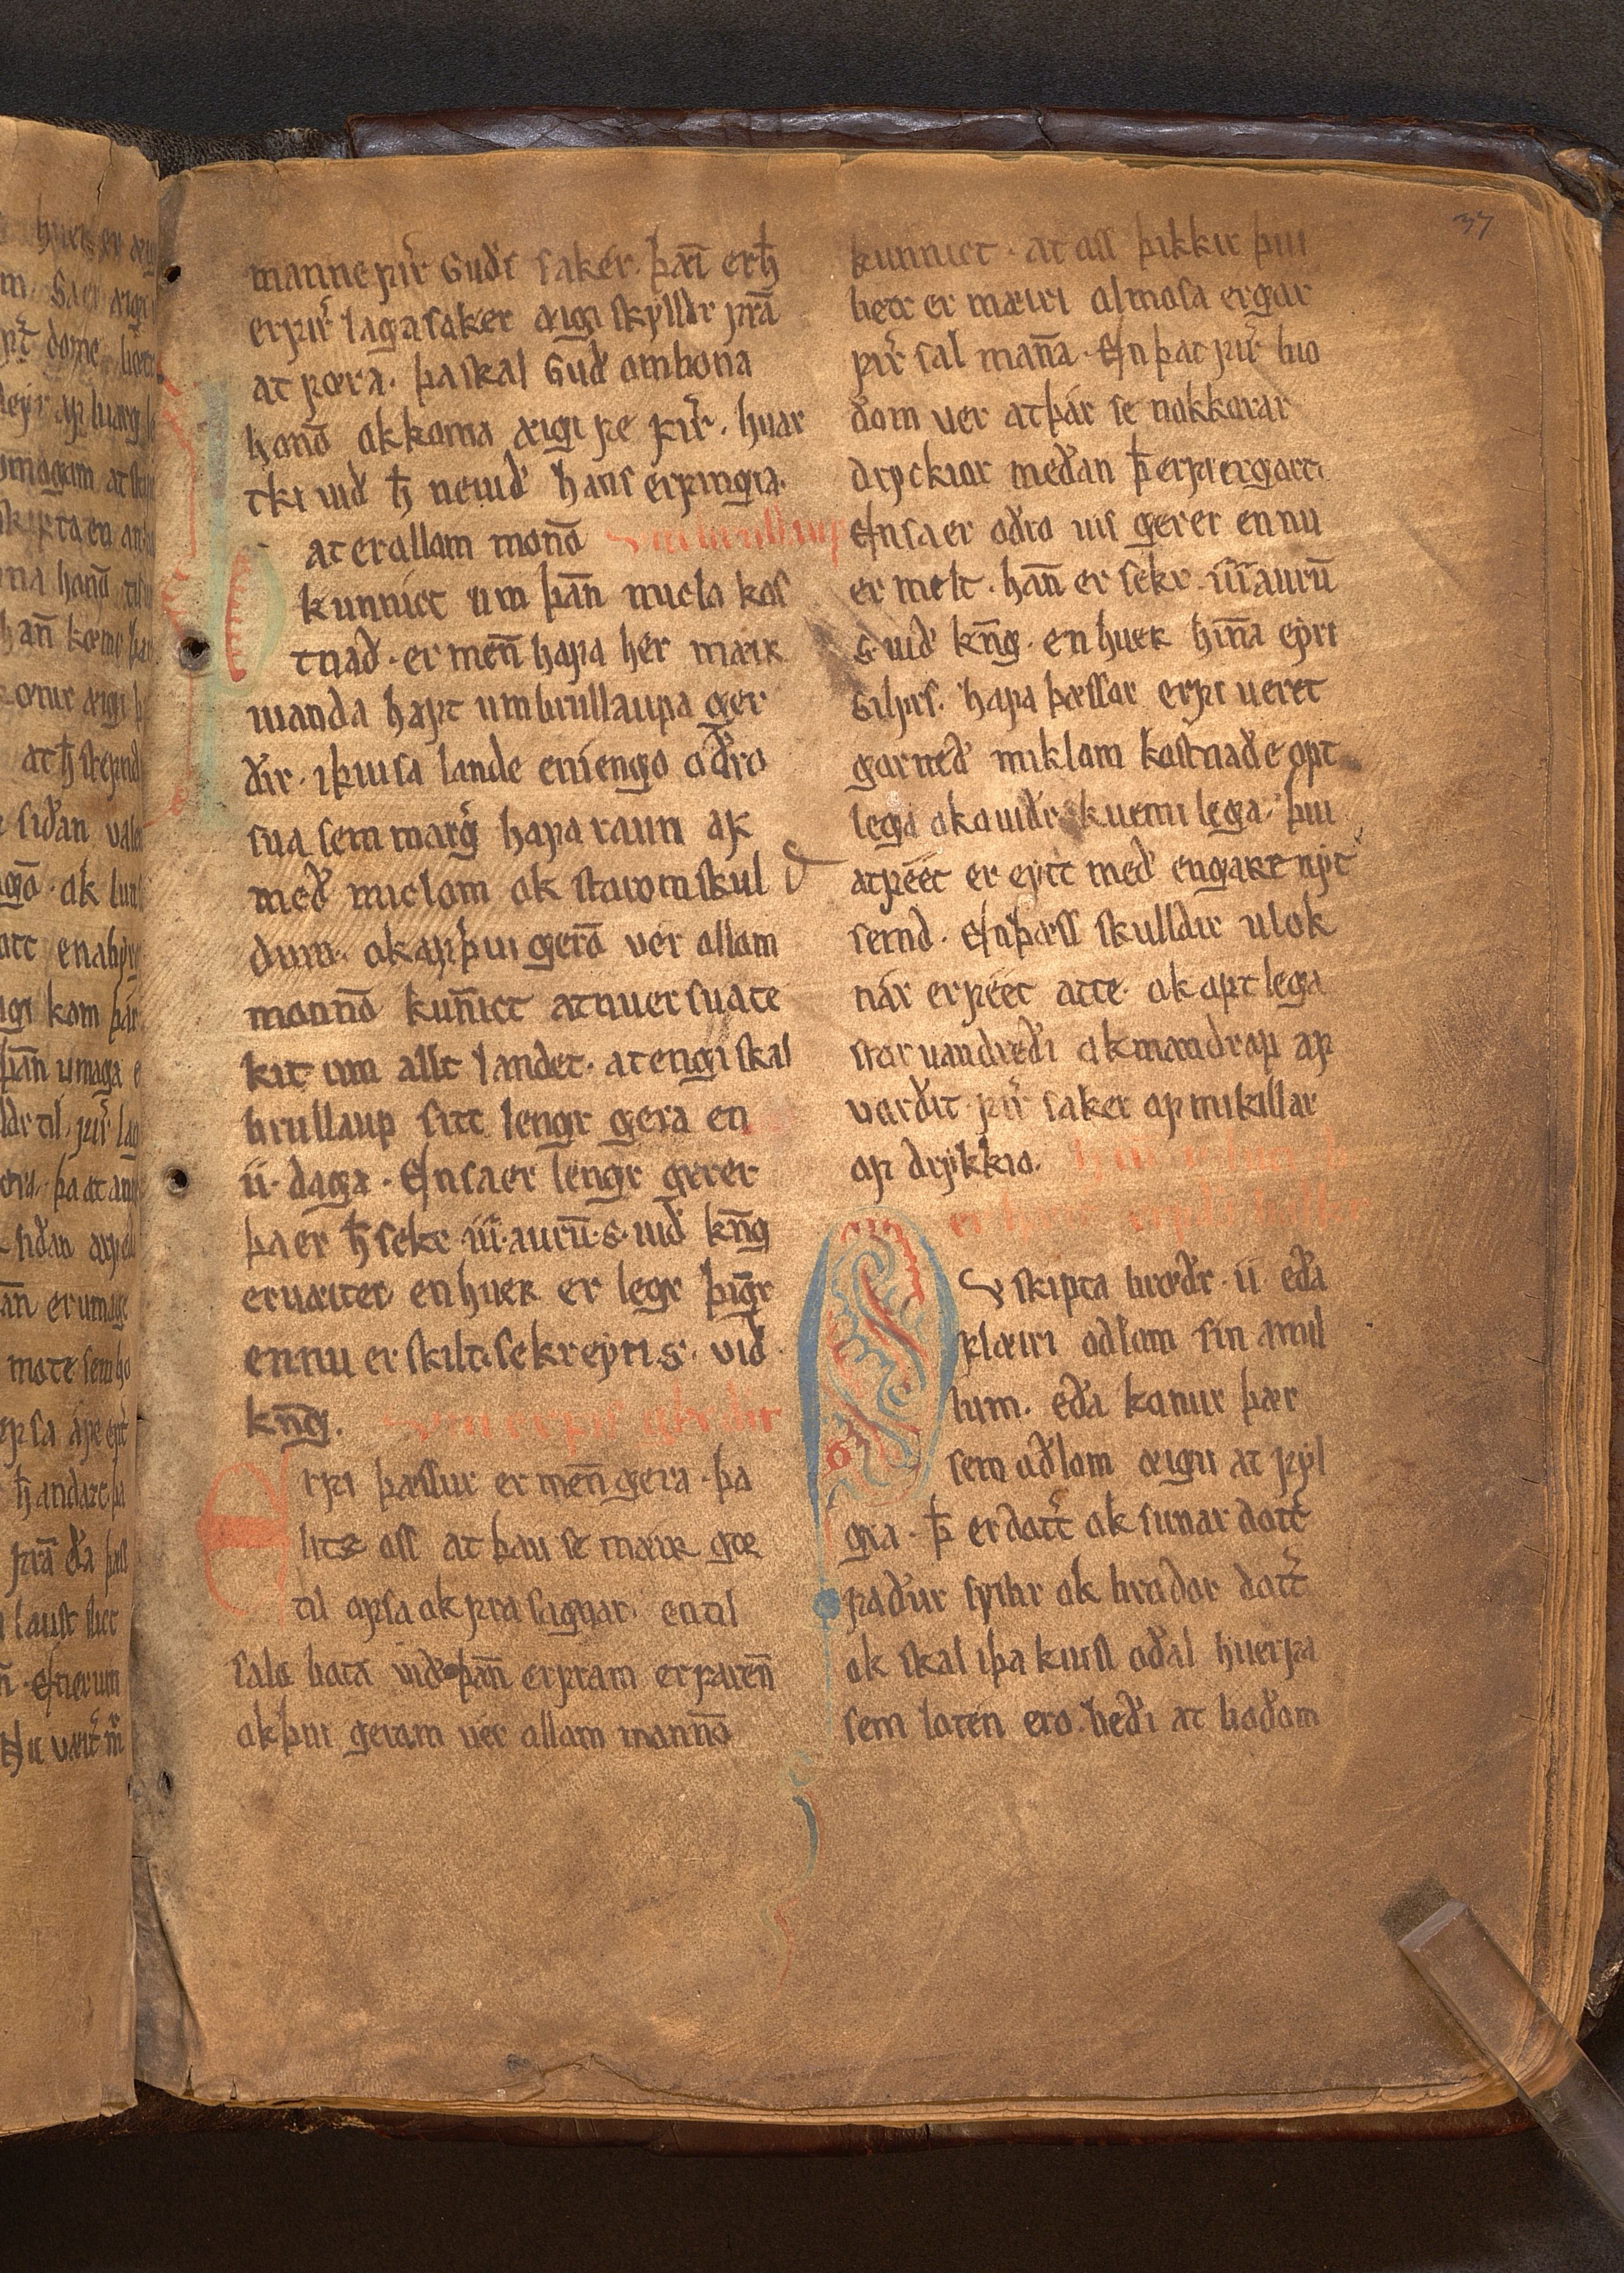 37
manne ꝼir guðs saker. þæi er ħ
er ꝼir lagasaker æigi skylldr ꝼra
at ꝼœra. þa skal guð ombona
hono ok koma æigi ꝼe ꝼir. huar
tki uid ħ ne uid hans erꝼingia.
Þat er ollom mono
kunnict um þan micla kos
tnad. er men haꝼa her mæir
uanda haꝼt um brullaupa ger
ðir. i þiusa lande en i engo oðro
sua sem marg haꝼa raun aꝼ
með miclom ok storom skul
dum. ok aꝼ þui gero ver ollom
monno kunict at ver sua te
kit um allt landet. at engi skal
brullaup sitt lengr gera en
ii. daga. En sa er lengr gerer
þa er ħ sekr iii. auru. s. uid kng
er uæiter en huer er legr þigr
en nu er skilt. sekr eyri s. vid
kng.
Erꝼi þæssur er men gera. þa
litz oss at þau se mæir gor
til oꝼsa ok ꝼra sagnar. en til
salo bota við þan er ꝼram er ꝼaren
ok þui gerom ver ollom monno
kunnict. at oss þikkir þui
betr er mæiri olmosa er gor
ꝼir sal mana. En þat ꝼir bio
ðom ver at þar se nokkorar
dryckior meðan þ erꝼi er gort.
En sa er oðro uis gerer en nu
er melt. han er sekr. iii auru
s. uid kng. en huer hina eyri
silꝼrs. haꝼa þæssor erꝼi veret
gor með miklom kostnaðe oꝼt
lega ok ouiðr kuemi lega. þui
at ꝼeet er eytt með engarr nyt
semd. En þæss skulldir ulok
nar er ꝼeet atte. ok oꝼt lega
stor uandreði ok mandrap aꝼ
vorðit ꝼir saker oꝼ mikillar
oꝼ drykkio.
Nv skipta brœðr. ii. eða
ꝼlæiri oðlom sin a mil
lum. eða konur þær
sem oðlom æigu at ꝼyl
gia. þ er dott ok sunar dott
ꝼaður systir ok broðor dott
ok skal i þa kuisl oðal huerꝼa
sem loten ero. beði at boðom